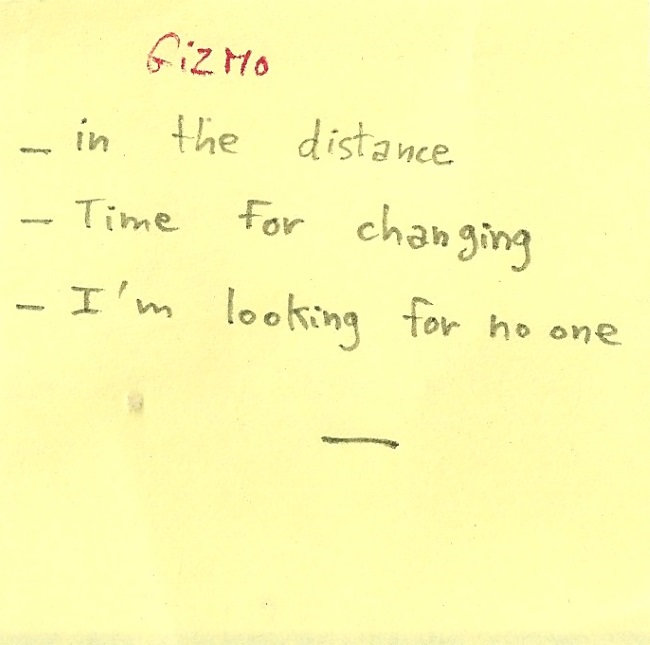 GiZMo
- in the distance
- Time For changing
- I'm looking for no one